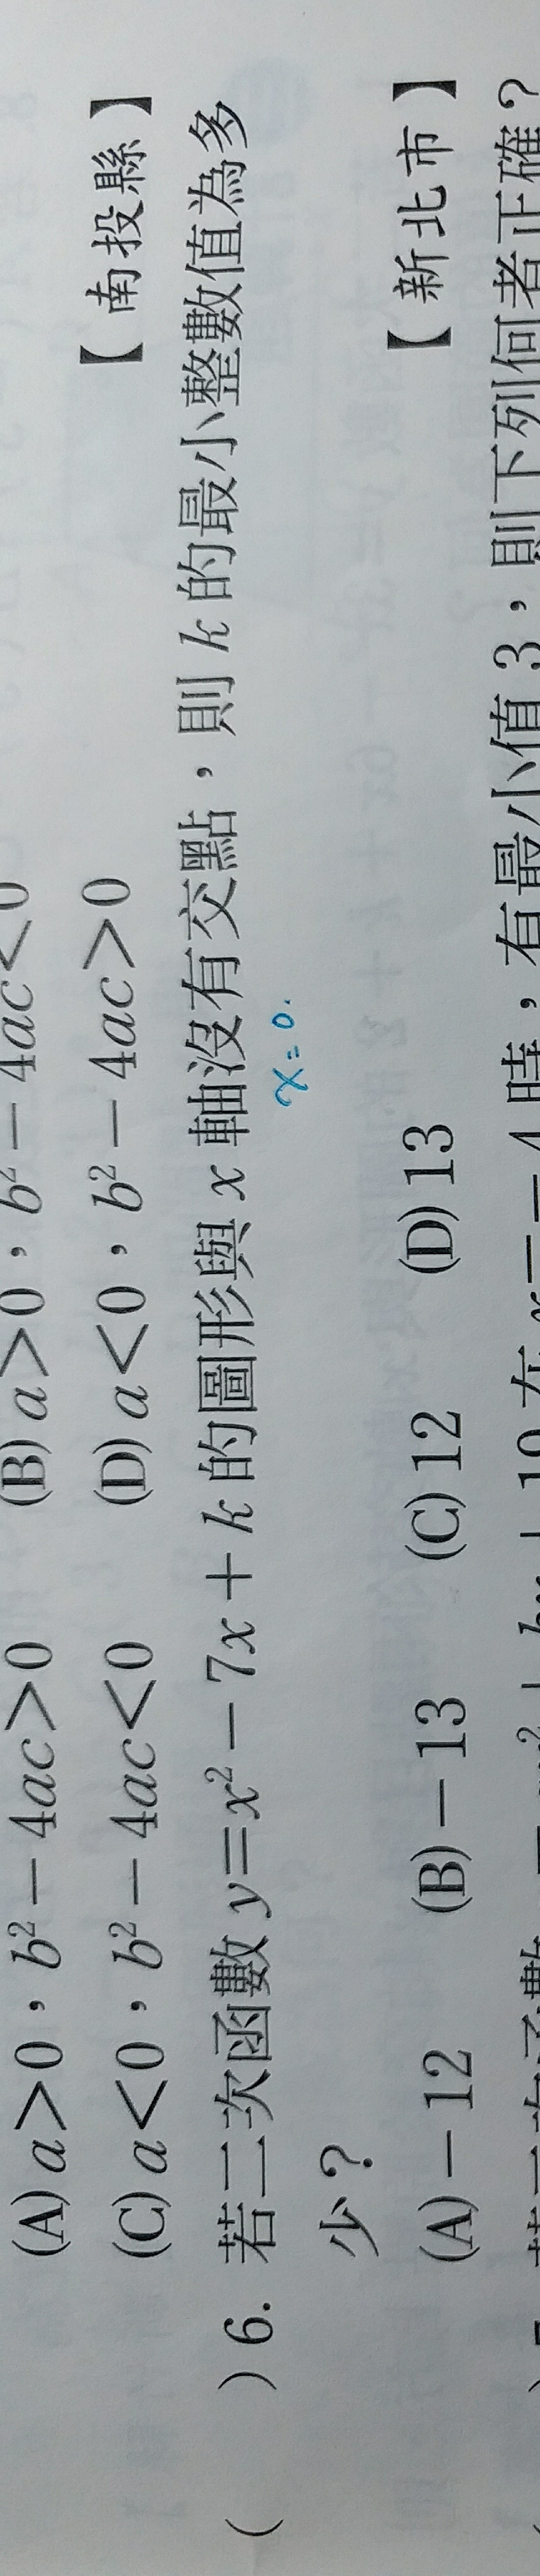 (A) a>0，b²－4ac>0 (B) a>0，b²－4ac<0
(C) a<0，b²－4ac<0 (D) a<0，b²－4ac>0 【南投縣】
( ) 6. 若二次函數 y=x²－7x＋k 的圖形與 x 軸沒有交點，則 k 的最小整數值為多
x=0.
少？
(A)－12 (B)－13 (C) 12 (D) 13 【新北市】
時，有最小值 3，則下列何者正確？